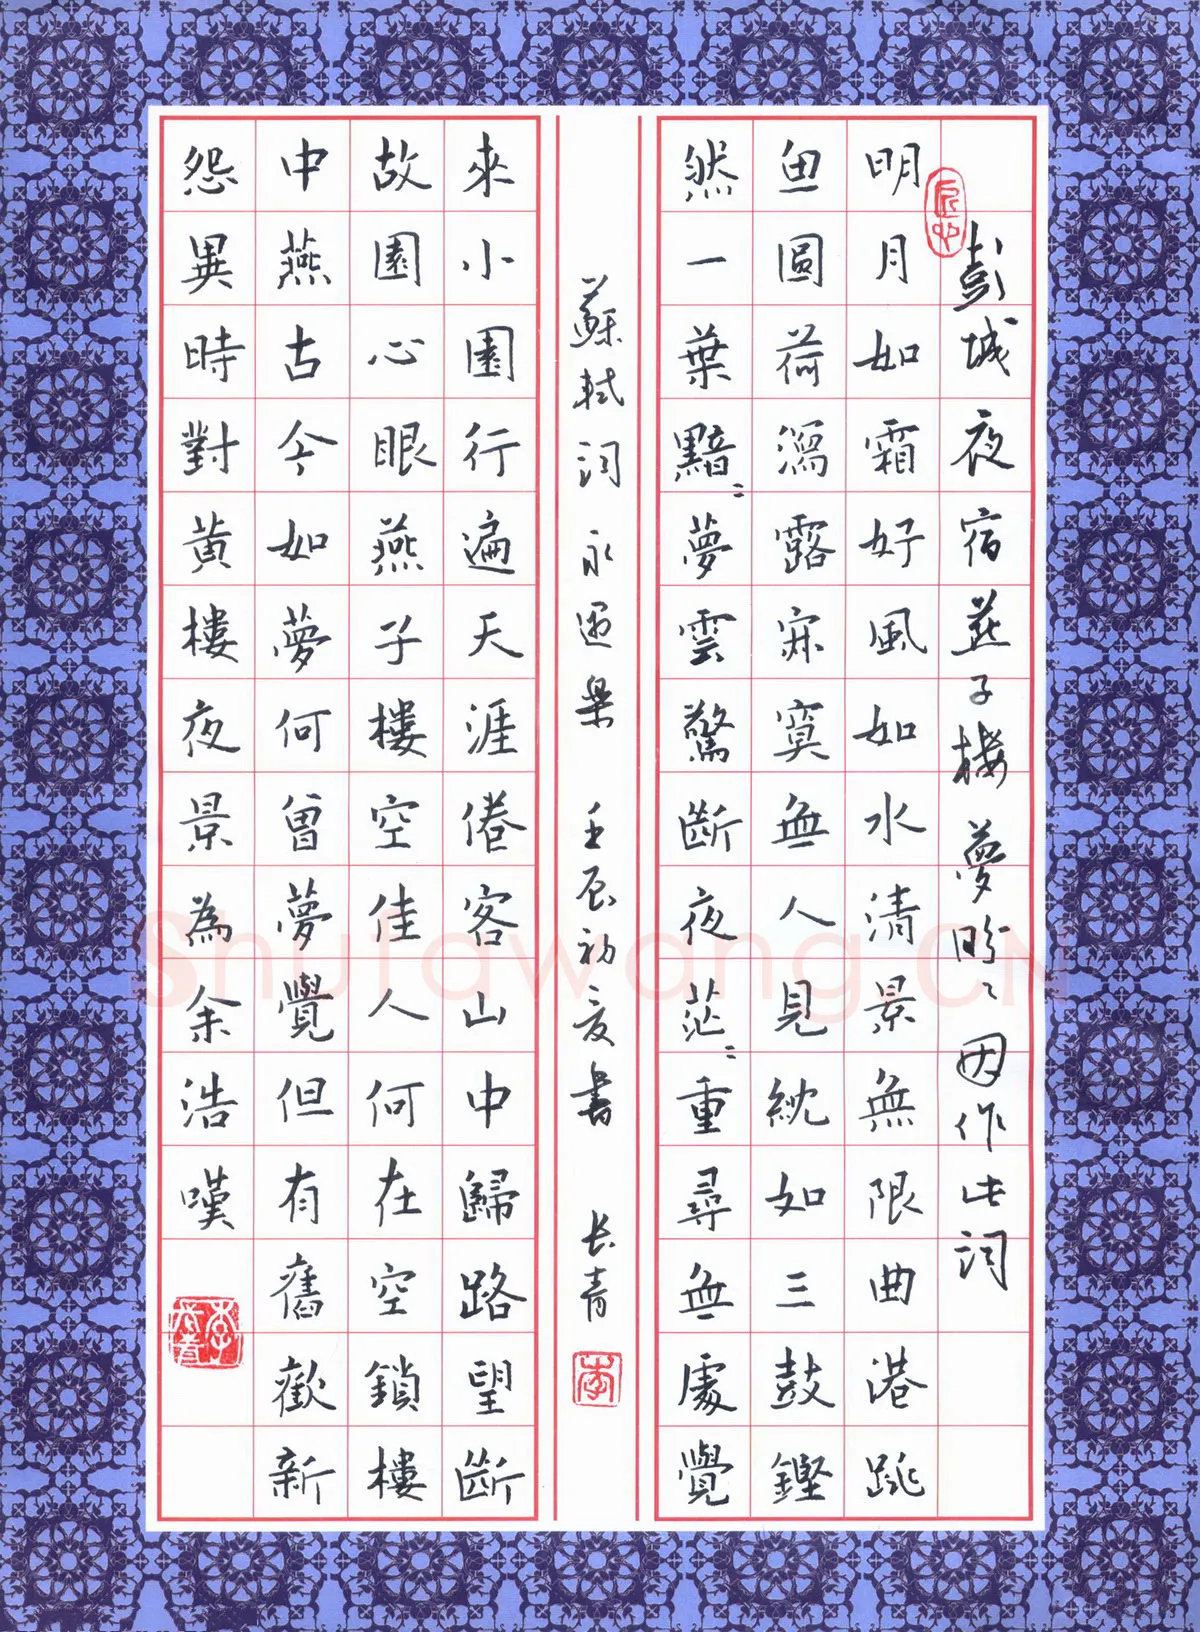 彭城夜宿燕子樓 夢盼〻因作此詞
明月如霜好風如水清景無限曲港跳
魚圓荷瀉露寂寞無人見紞如三鼓鏗
然一葉黯〻夢雲驚斷夜茫〻重尋無處覺
蘇軾詞 永遇樂 壬辰初夏書 长青
李
來小園行遍天涯倦客山中歸路望斷
故園心眼燕子樓空佳人何在空鎖樓
中燕古今如夢何曾夢覺但有舊歡新
怨異時對黃樓夜景為余浩嘆
Shufawang.CN